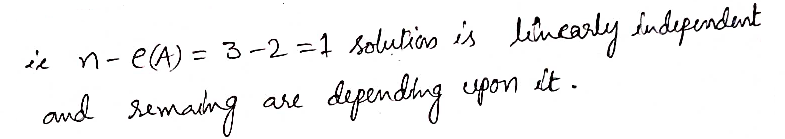 ie n - ρ(A) = 3 - 2 = 1 solution is linearly independent
and remaing are depending upon it.